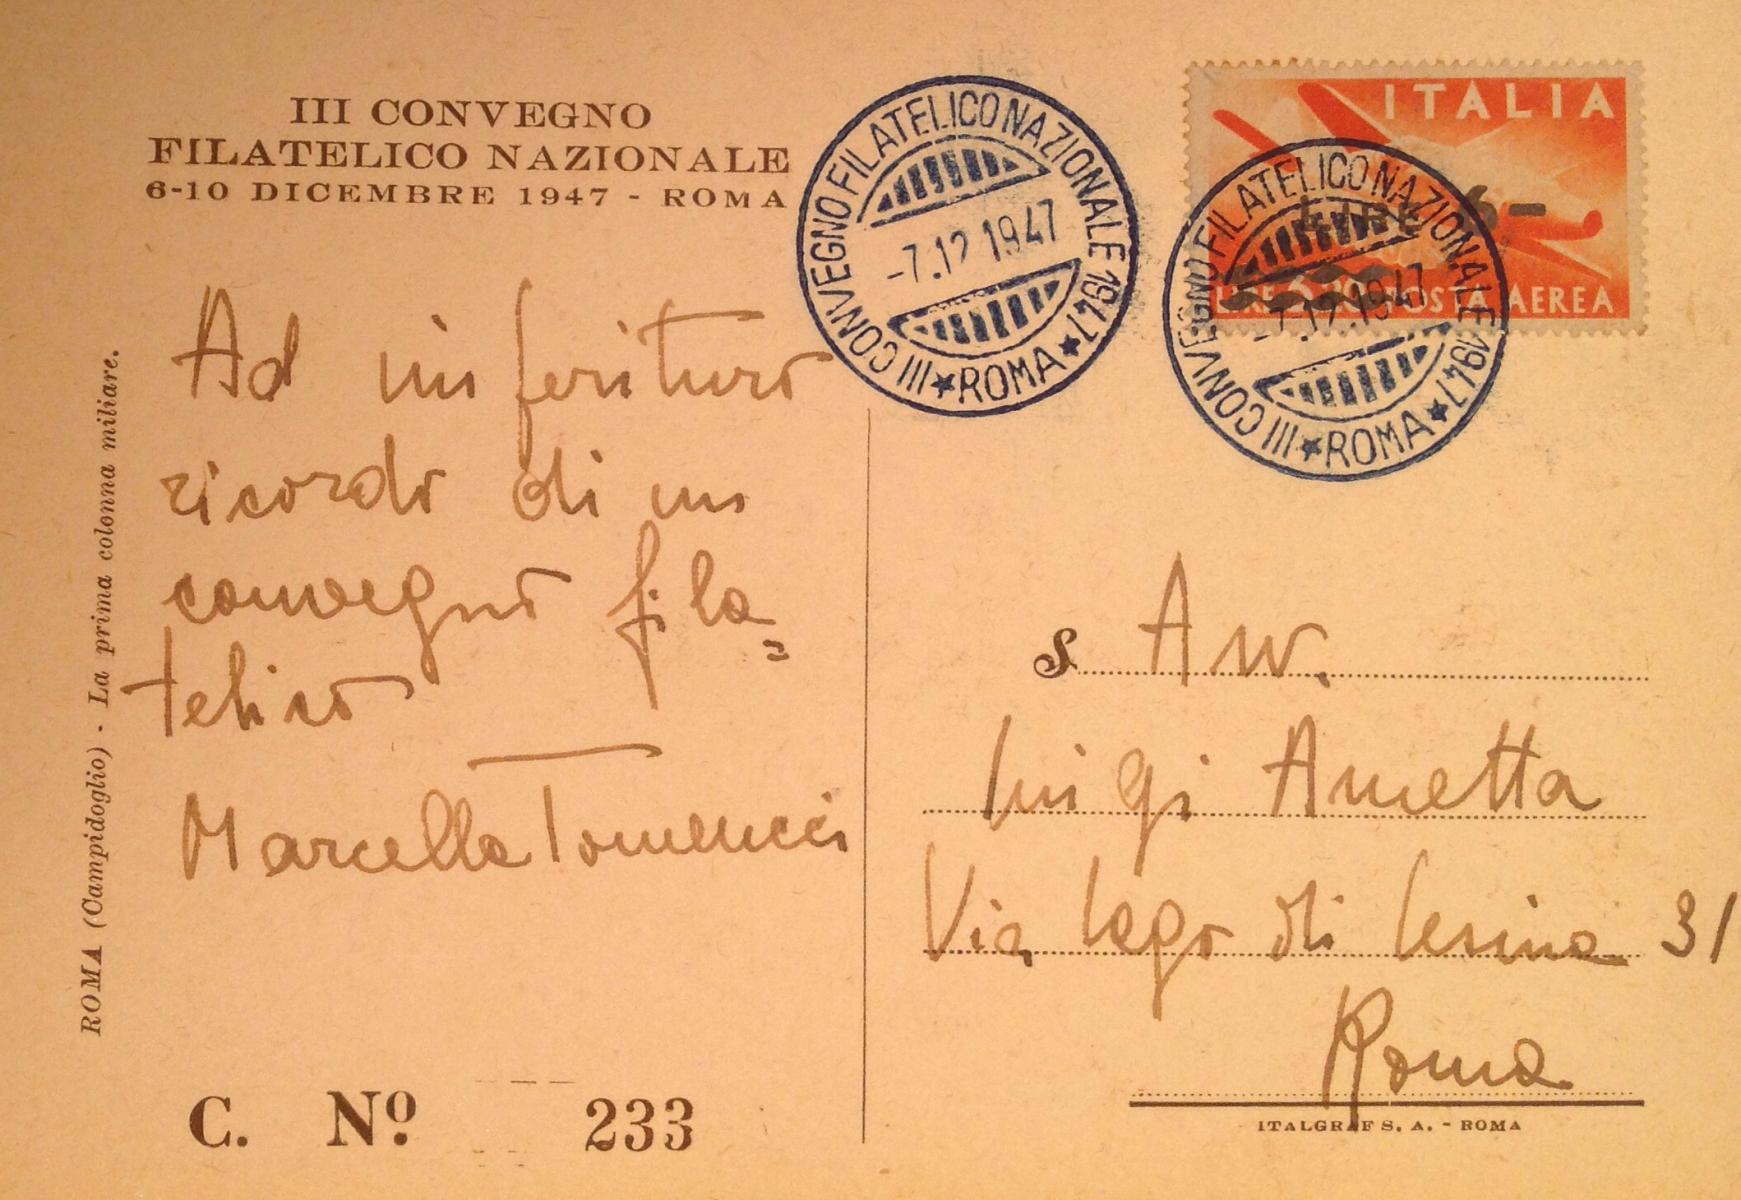 III CONVEGNO
FILATELICO NAZIONALE
6-10 DICEMBRE 1947 - ROMA
III CONVEGNO FILATELICO NAZIONALE 1947
-7.12 1947
★ ROMA ★
ITALIA
LIRE 6-
LIRE 3,20 POSTA AEREA
III CONVEGNO FILATELICO NAZIONALE 1947
-7.12.1947
★ ROMA ★
ROMA (Campidoglio) - La prima colonna miliare.
Ad un
ricordo di un
convegno fila=
telico
Marcella
S. Avv.
Luigi Ametta
Via Lago di Lesina 31
Roma
ITALGRAF S. A. - ROMA
C. Nº 233